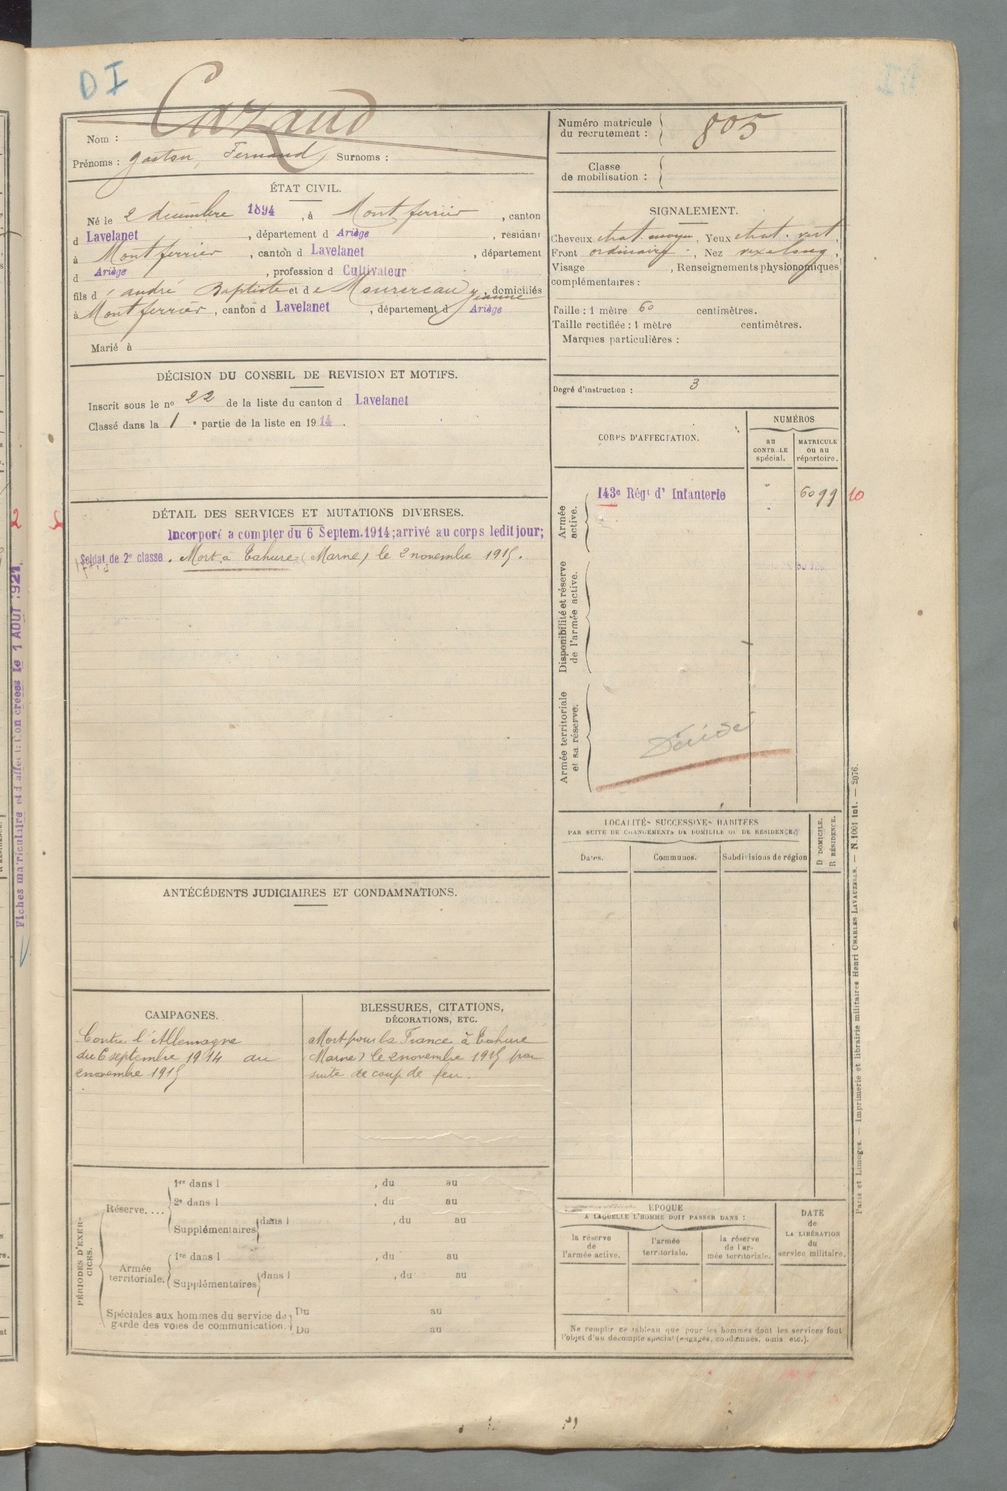 DI
Cazaud
Nom :
Prénoms : Gaston, Fernand Surnoms :
ÉTAT CIVIL.
Né le 2 décembre 1894, à Montferrier, canton
d Lavelanet, département d Ariège, résidant
à Montferrier, canton d Lavelanet, département
d Ariège, profession d Cultivateur
fils d' André Baptiste et de Jeanne, domiciliés
à Montferrier, canton d Lavelanet, département d Ariège
Marié à
DÉCISION DU CONSEIL DE REVISION ET MOTIFS.
Inscrit sous le n° 22 de la liste du canton d Lavelanet
Classé dans la 1e partie de la liste en 1914.
DÉTAIL DES SERVICES ET MUTATIONS DIVERSES.
Incorporé a compter du 6 Septem.1914; arrivé au corps ledit jour;
Soldat de 2e classe. Mort à Tahure (Marne) le 2 novembre 1915.
ANTÉCÉDENTS JUDICIAIRES ET CONDAMNATIONS.
CAMPAGNES.
Contre l'Allemagne
du 6 septembre 1914 au
2 novembre 1915
BLESSURES, CITATIONS,
DÉCORATIONS, ETC.
Mort pour la France à Tahure
(Marne) le 2 novembre 1915 par
suite de coup de feu.
PÉRIODES D'EXER-
CICES.
Réserve....
1re dans l , du au
2e dans l , du au
Supplémentaires dans l , du au
Armée
territoriale.
1re dans l , du au
Supplémentaires dans l , du au
Spéciales aux hommes du service de Du au
garde des voies de communication. Du au
Numéro matricule
du recrutement : 805
Classe
de mobilisation :
SIGNALEMENT.
Cheveux chat. moyen, Yeux chat. vert,
Front ordinaire, Nez
Visage , Renseignements physionomiques
complémentaires :
Taille : 1 mètre 60 centimètres.
Taille rectifiée : 1 mètre centimètres.
Marques particulières :
Degré d'instruction : 3
CORPS D'AFFECTATION.
NUMÉROS
AU
CONTRÔLE
spécial.
MATRICULE
ou au
répertoire.
Armée
active.
143e Régt d' Infanterie 6099 10
Disponibilité et réserve
de l'armée active.
Armée territoriale
et sa réserve.
Décédé
LOCALITÉS SUCCESSIVES HABITÉES
PAR SUITE DE CHANGEMENTS DE DOMICILE OU DE RÉSIDENCE.
Dates. Communes. Subdivisions de région
D. DOMICILE.
R. RÉSIDENCE.
ÉPOQUE
A LAQUELLE L'HOMME DOIT PASSER DANS :
la réserve
de
l'armée active.
l'armée
territoriale.
la réserve
de l'ar-
mée territoriale.
DATE
de
LA LIBÉRATION
du
service militaire.
Ne remplir ce tableau que pour les hommes dont les services font
l'objet d'un décompte spécial (engagés, condamnés, omis etc.).
Paris et Limoges. — Imprimerie et librairie militaires Henri CHARLES-LAVAUZELLE. — N. 1001 int. — 2076.
Fiches matriculaire et d'affectation créées le 1 AOUT 1921